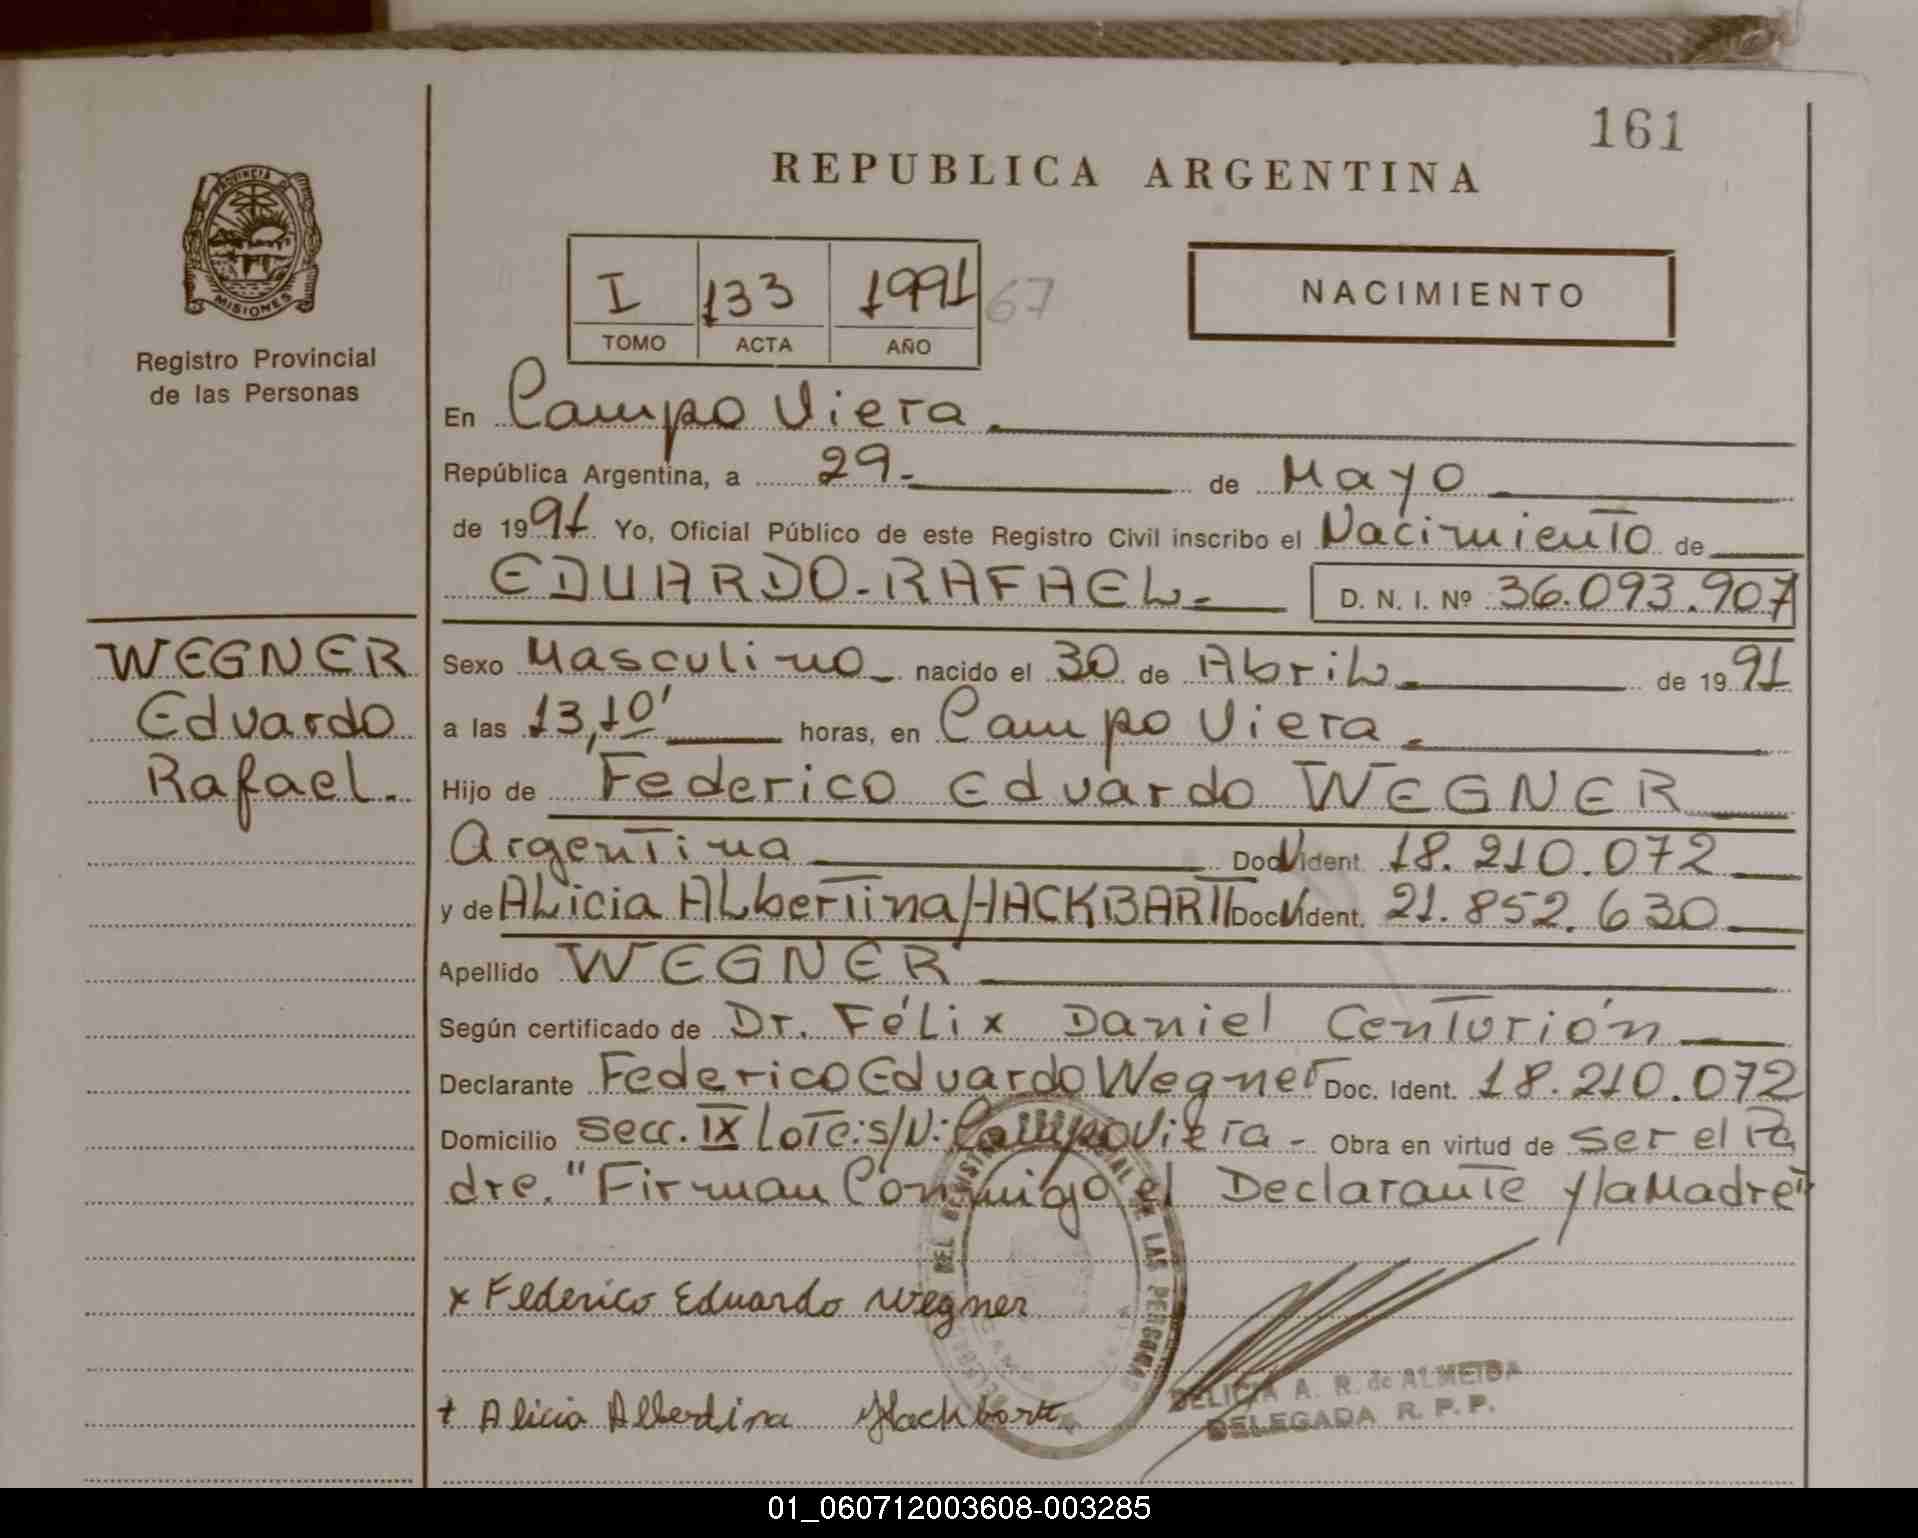 161
REPUBLICA ARGENTINA
PROVINCIA DE
MISIONES
Registro Provincial
de las Personas
I 133 1991 67
TOMO ACTA AÑO
NACIMIENTO
En Campo Viera.
República Argentina, a 29- de Mayo
de 1991 Yo, Oficial Público de este Registro Civil inscribo el Nacimiento de
EDUARDO-RAFAEL- D. N. I. Nº 36.093.907
WEGNER
Eduardo
Rafael.
Sexo Masculino nacido el 30 de Abril de 1991
a las 13,10' horas, en Campo Viera.
Hijo de Federico Eduardo WEGNER
Argentina Doc. Ident. 18.210.072
y de Alicia Albertina HACKBARTT Doc. Ident. 21.852.630
Apellido WEGNER
Según certificado de Dr. Félix Daniel Centurión
Declarante Federico Eduardo Wegner Doc. Ident. 18.210.072
Domicilio Secc. IX Lote: s/N: Campo Viera - Obra en virtud de ser el Pa
dre. "Firman Conmigo el Declarante y la Madre"
DEL REGISTRO PROVINCIAL DE LAS PERSONAS
x Federico Eduardo Wegner
+ Alicia Albertina Hackbartt
DELICIA A. R. de ALMEIDA
DELEGADA R. P. P.
01_060712003608-003285